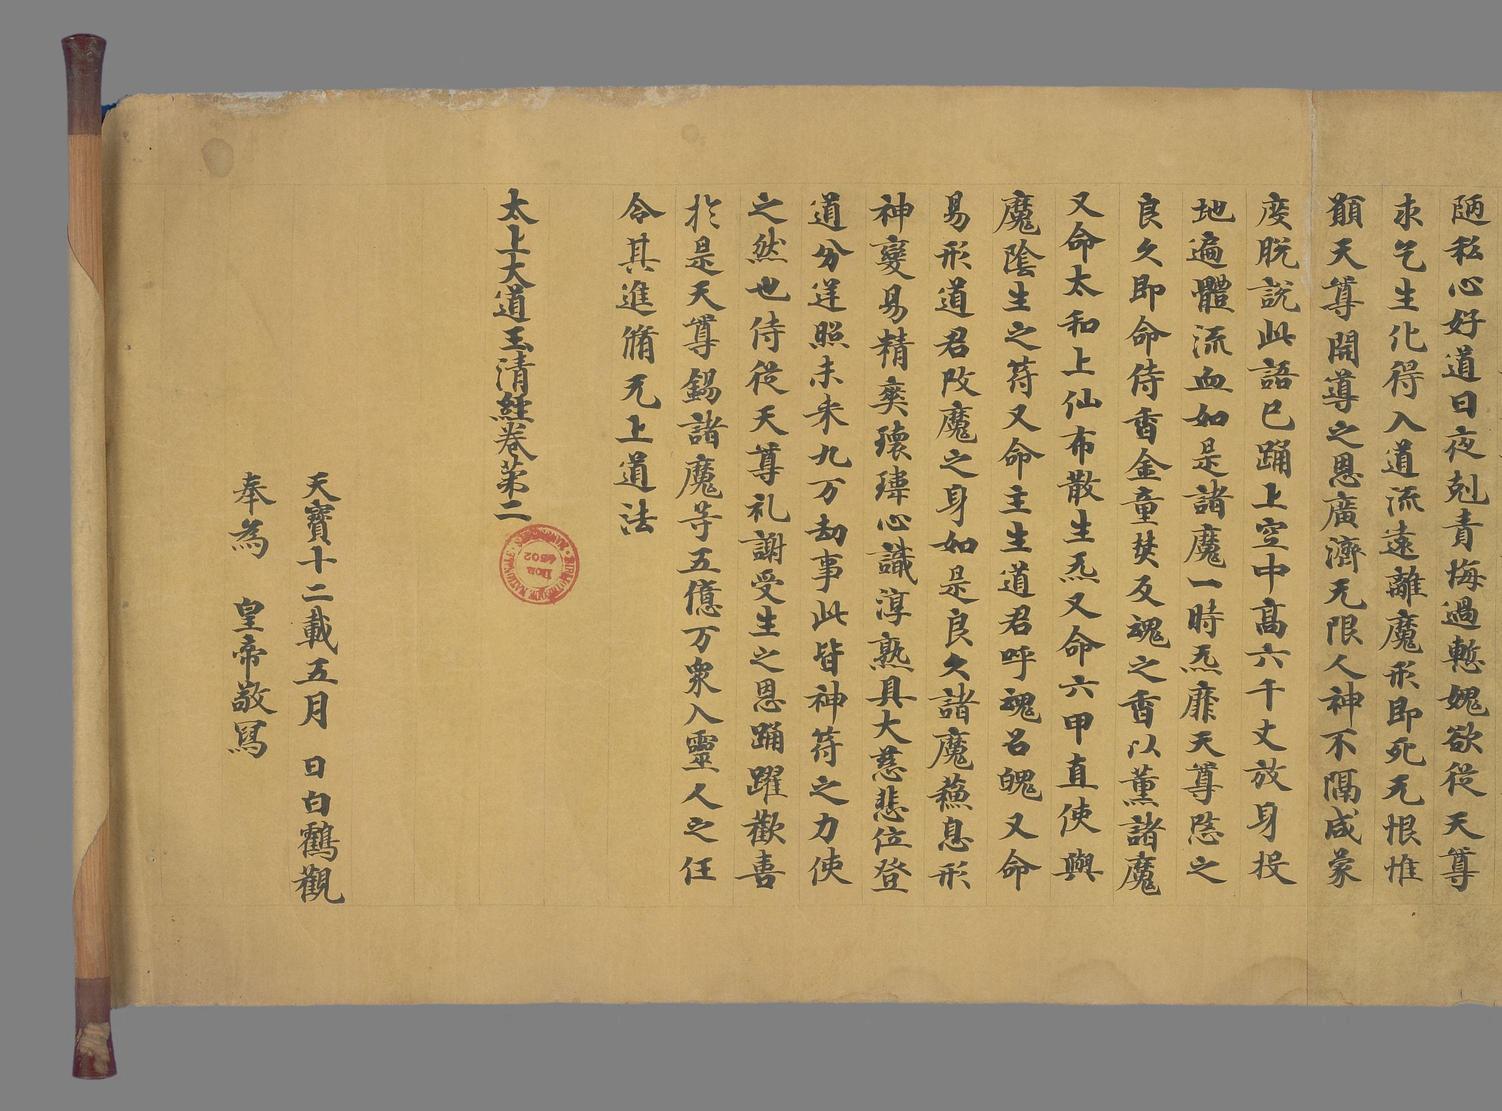 陋私心好道日夜剋責悔過慙媿欲從天尊
求乞生化得入道流遠離魔形即死无恨惟
願天尊開導之恩廣濟无限人神不隔咸蒙
度脫說此語已踊上空中高六千丈放身投
地遍體流血如是諸魔一時炁靡天尊愍之
良久即命侍香金童焚反魂之香以薰諸魔
又命太和上仙布散生炁又命六甲直使與
魔陰生之符又命主生道君呼魂召魄又命
易形道君改魔之身如是良久諸魔蘓息形
神變易精爽瓌瑋心識淳熟具大慈悲位登
道分逆照未来九万劫事此皆神符之力使
之然也侍從天尊礼謝受生之恩踊躍歡喜
於是天尊錫諸魔等五億万衆入靈人之任
令其進脩无上道法
太上大道玉清經卷第二
天寶十二載五月 日白鶴觀
奉為 皇帝敬寫
BIBLIOTHEQUE NATIONALE MANUSCRITS
Don
4502